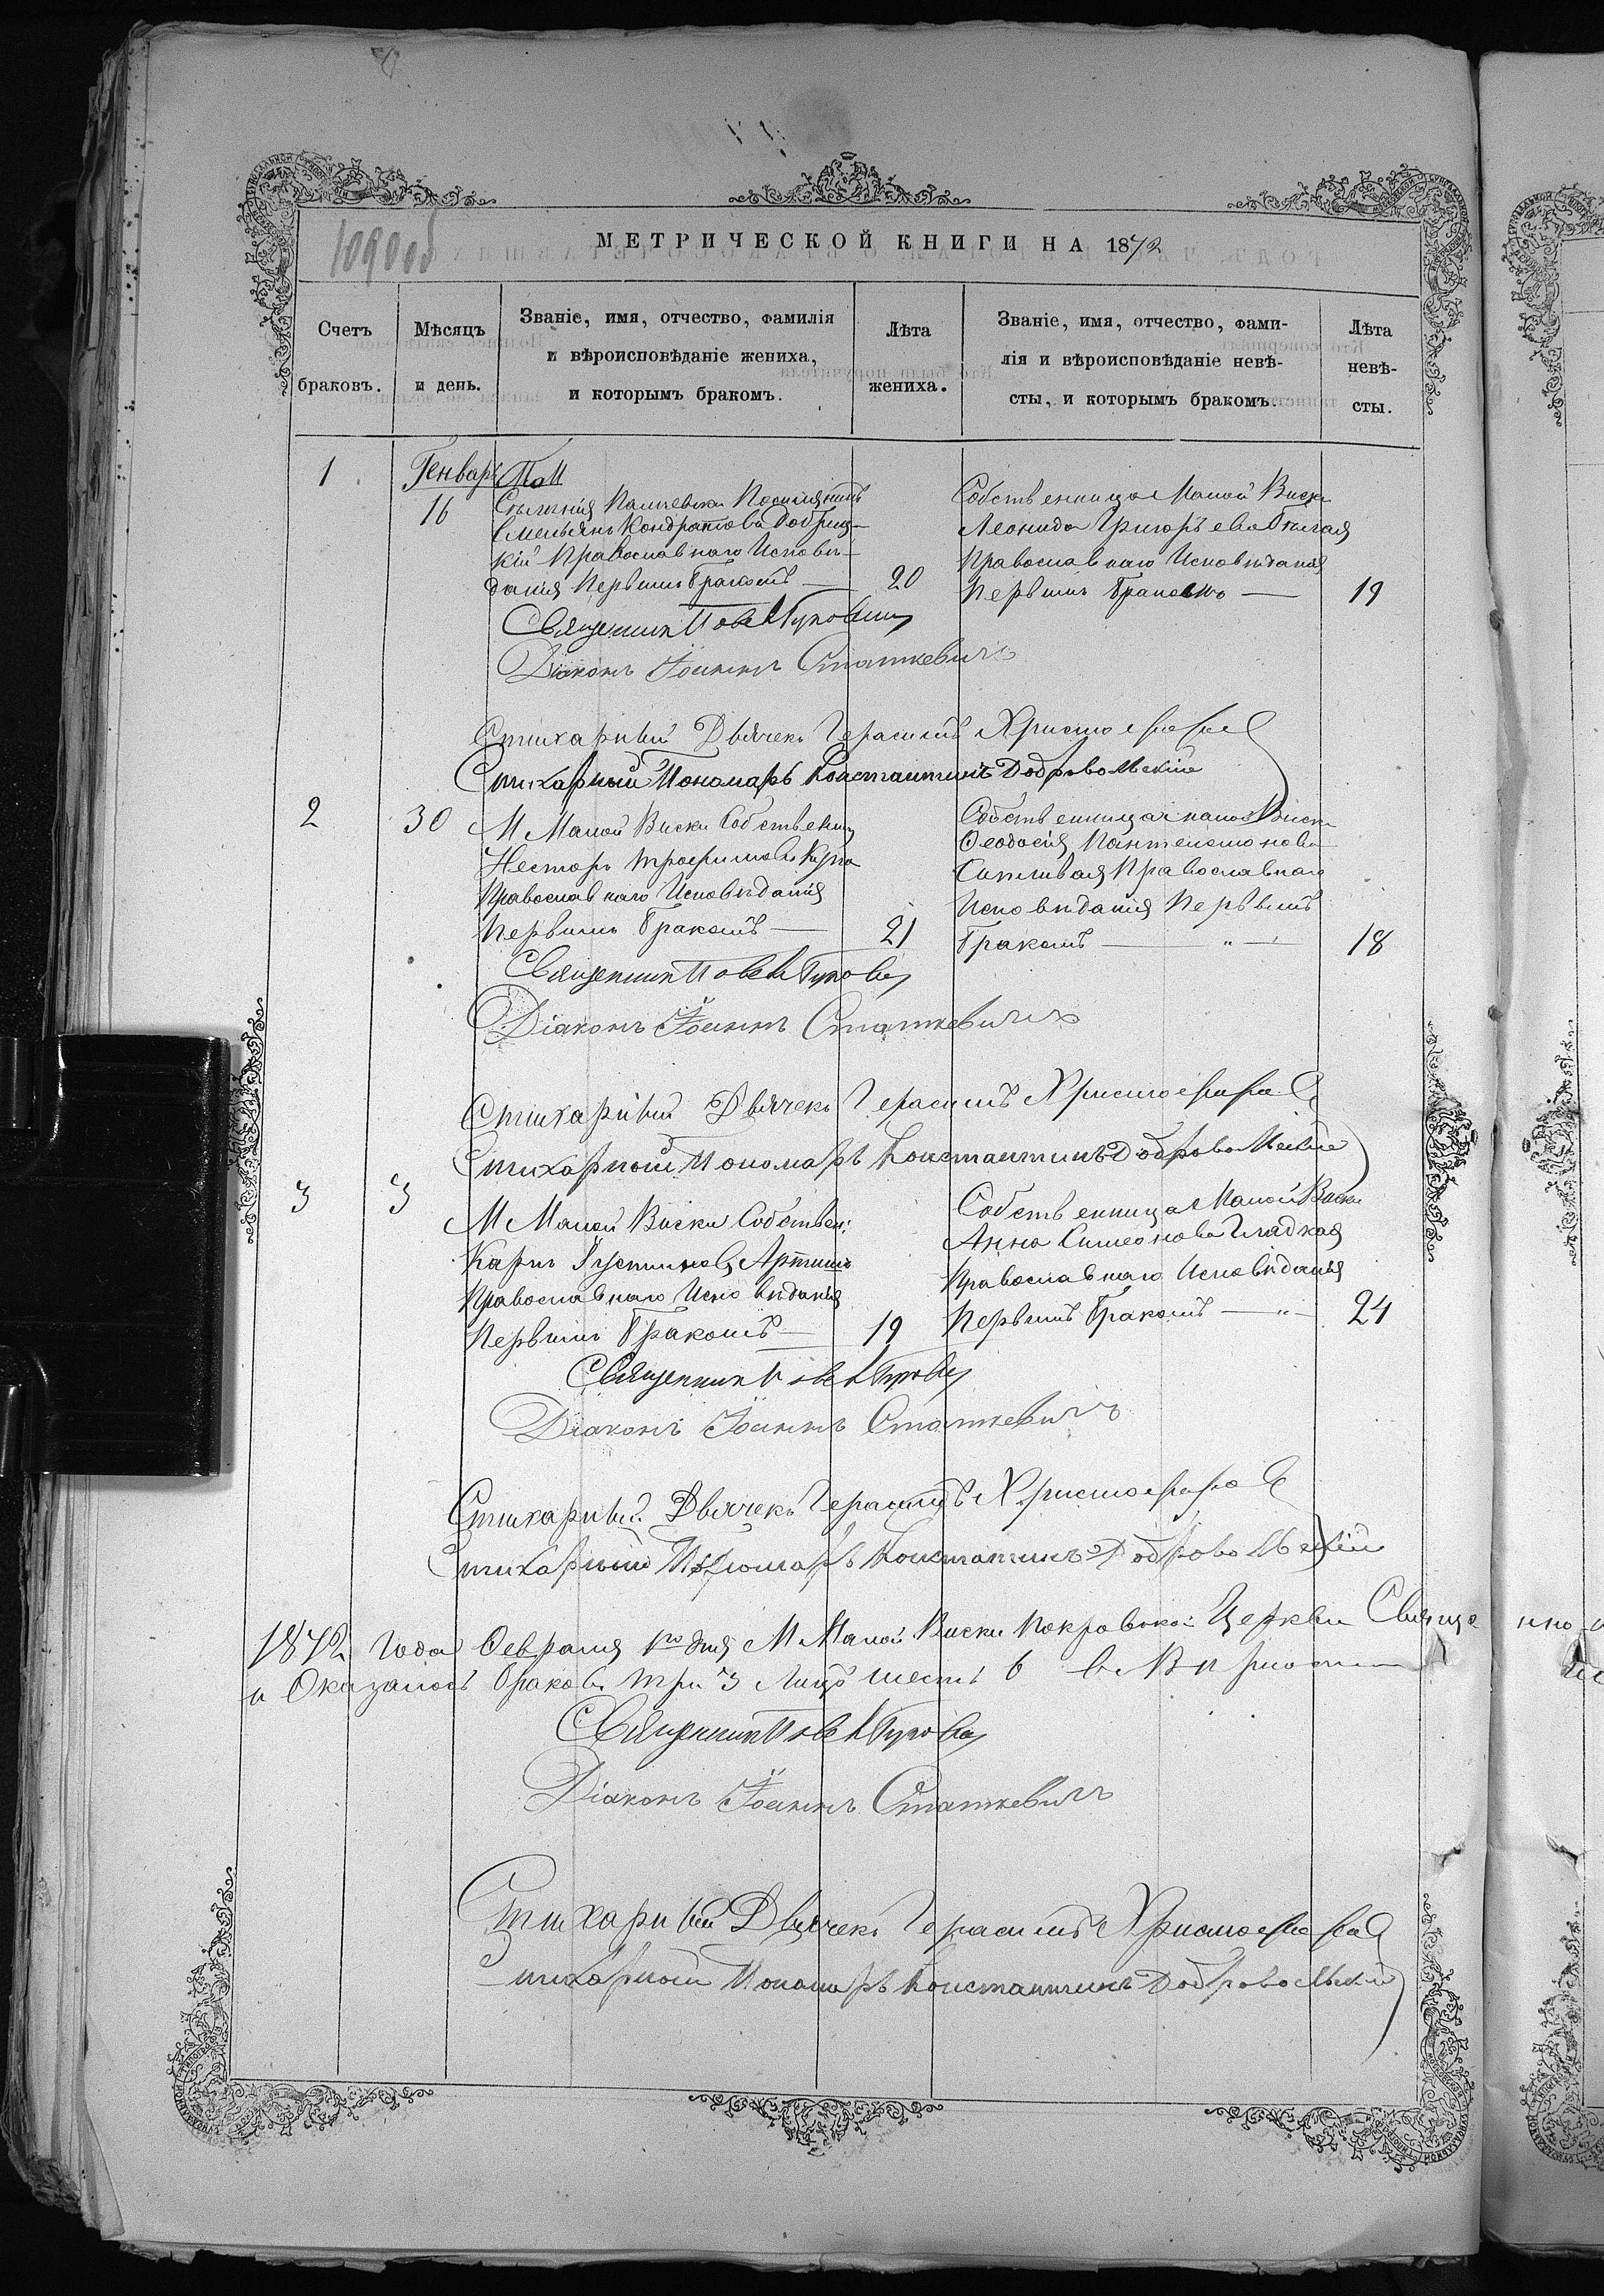 1090об
МЕТРИЧЕСКОЙ КНИГИ НА 1872
Счетъ браковъ.
Мѣсяцъ и день.
Званіе, имя, отчество, фамилія
и вѣроисповѣданіе жениха,
и которымъ бракомъ.
Лѣта
жениха.
Званіе, имя, отчество, фами-
лія и вѣроисповѣданіе невѣ-
сты, и которымъ бракомъ.
Лѣта
невѣ-
сты.
1
Генварь
16
Емельянъ Кондратовъ Добриц-
кій Православнаго Исповѣ-
данія Первымъ Бракомъ — 20
Собственница Малой Виски
Леонида Григорьева Бѣлая
Православнаго Исповѣданія
Первымъ Бракомъ — 19
Священникъ
Діаконъ Іоаннъ Статкевичъ
Стихарный Дьячекъ Герасимъ Христофоров
Стихарный Пономарь Константинъ Добровольскій
2
30
М Малой Виски Собственни
Несторъ Трофимовъ
Православнаго Исповѣданія
Первымъ Бракомъ — 21
Собственница Малой Виски
Феодосія Пантелеимонова
Православнаго
Исповѣданія Первымъ
Бракомъ — " — 18
Священникъ
Діаконъ Іоаннъ Статкевичъ
Стихарный Дьячекъ Герасимъ Христофоров
Стихарный Пономарь Константинъ Добровольскій
3
3
М Малой Виски Собствен:
Карпъ Іустиновъ Артишъ
Православнаго Исповѣданія
Первымъ Бракомъ — 19
Собственница Малой Виски
Анна Симеонова Гладкая
Православнаго Исповѣданія
Первымъ Бракомъ — " — 24
Священникъ
Діаконъ Іоаннъ Статкевичъ
Стихарный Дьячекъ Герасимъ Христофоров
Стихарный Пономарь Константинъ Добровольскій
1872 Года Февраля 1го дня М Малой Виски Покровской Церкви Священно
и Оказалось Браковъ три 3 Лицъ шесть 6 въ Вѣрност
Священникъ
Діаконъ Іоаннъ Статкевичъ
Стихарный Дьячекъ Герасимъ Христофоров
Стихарный Пономарь Константинъ Добровольскій